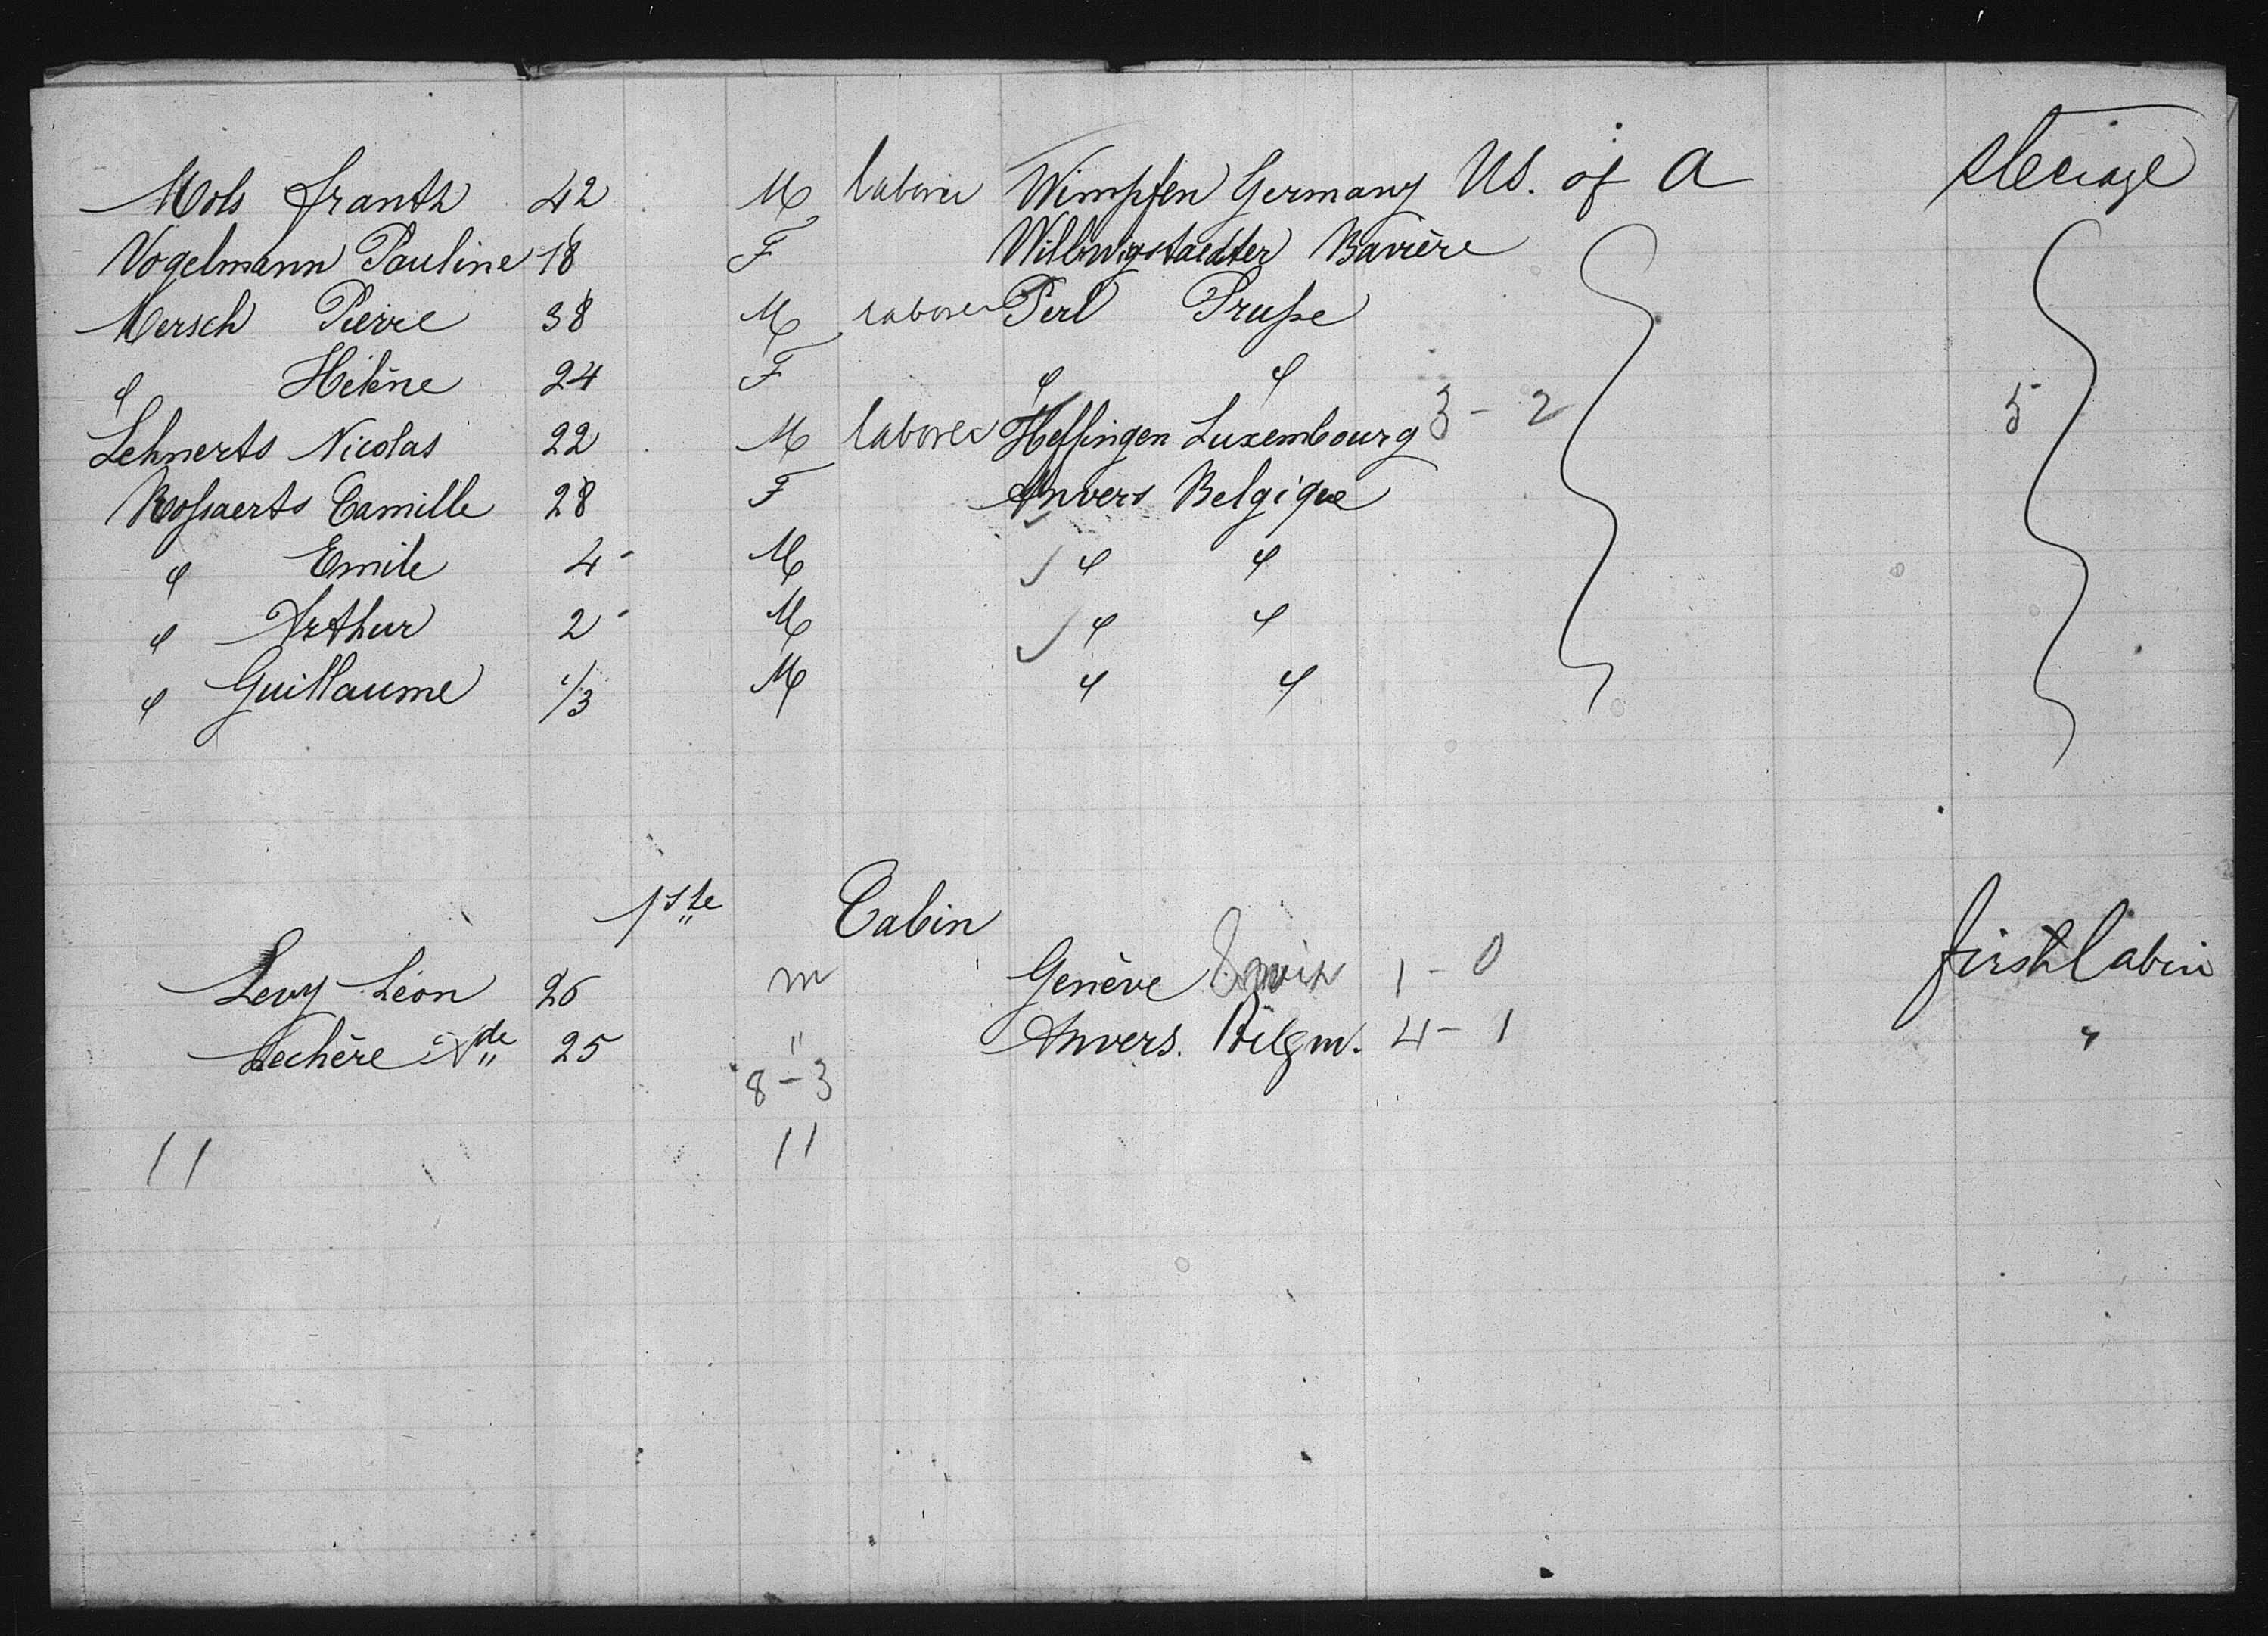 Mols Frantz 42 M laborer Wimpfen Germany US. of A steerage
Vogelmann Pauline 18 F Bavière
Mersch Pierre 38 M laborer Perl Prusse
" Hélène 24 F " "
3 - 2 5
Lehnerts Nicolas 22 M laborer Heffingen Luxembourg
Rossaerts Camille 28 F Anvers Belgique
" Emile 4 M " "
" Arthur 2 M " "
" Guillaume 1/3 M " "
1ste Cabin
Levy Léon 26 m Genève 1 - 0 first Cabin
Lechère 25 " Anvers. Belgm. 4 - 1 "
8 - 3
11 11